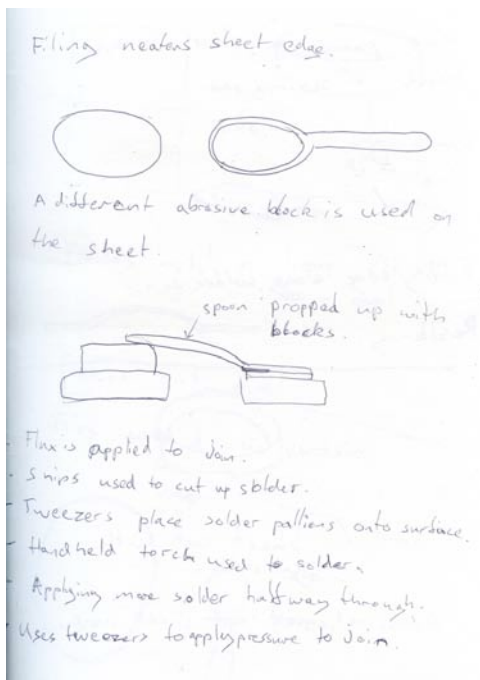 Filing neatens sheet edge.
A different abrasive block is used on
the sheet.
spoon propped up with
blocks.
- Flux is applied to join.
- Snips used to cut up solder.
- Tweezers place solder palliens onto surface.
- Handheld torch used to solder.
- Applying more solder halfway through.
- Uses tweezers to apply pressure to join.